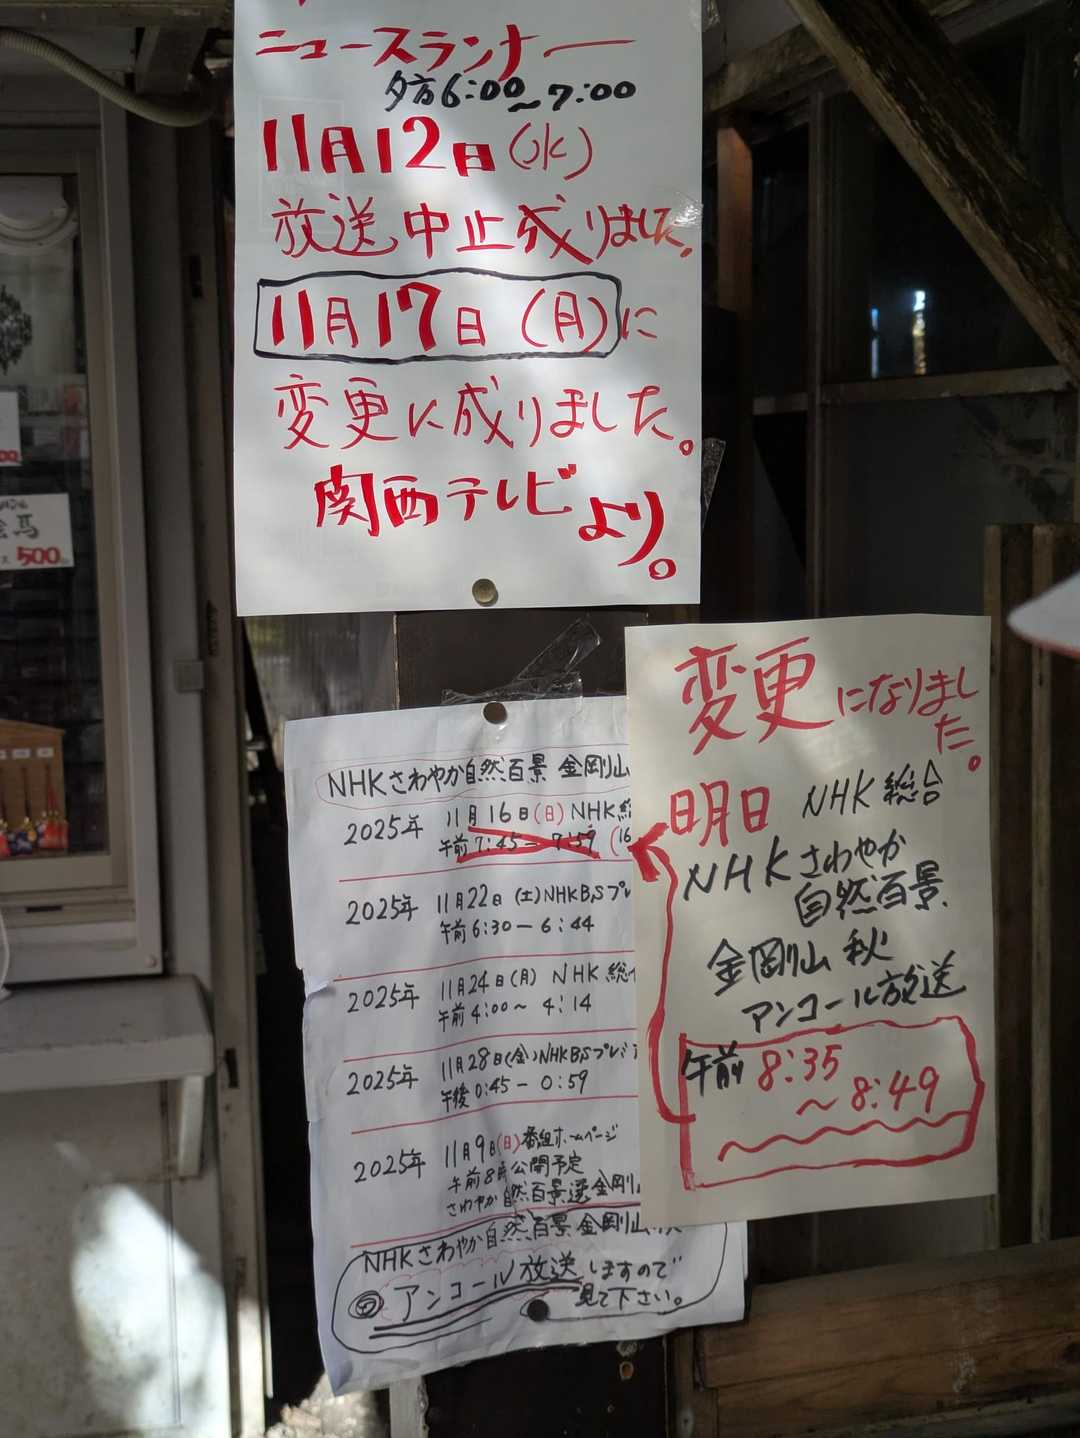 ニュースランナー
夕方6:00~7:00
11月12日(水)
放送中止成りました。
11月17日(月)に
変更に成りました。
関西テレビより。
絵馬
500
変更になりました。
明日 NHK 総合
NHKさわやか
自然百景
金剛山 秋
アンコール放送
午前 8:35
~8:49
NHKさわやか自然百景 金剛山
2025年 11月16日(日)NHK総
午前7:45-7:59 (16
2025年 11月22日(土)NHKBSプレ
午前6:30-6:44
2025年 11月24日(月) NHK 総
午前4:00~4:14
2025年 11月28日(金)NHKBSプレミ
午後0:45-0:59
2025年 11月9日(日)番組ホームページ
午前8時公開予定
さわやか自然百景選金剛山
NHKさわやか自然百景 金剛山
アンコール放送しますので
見て下さい。